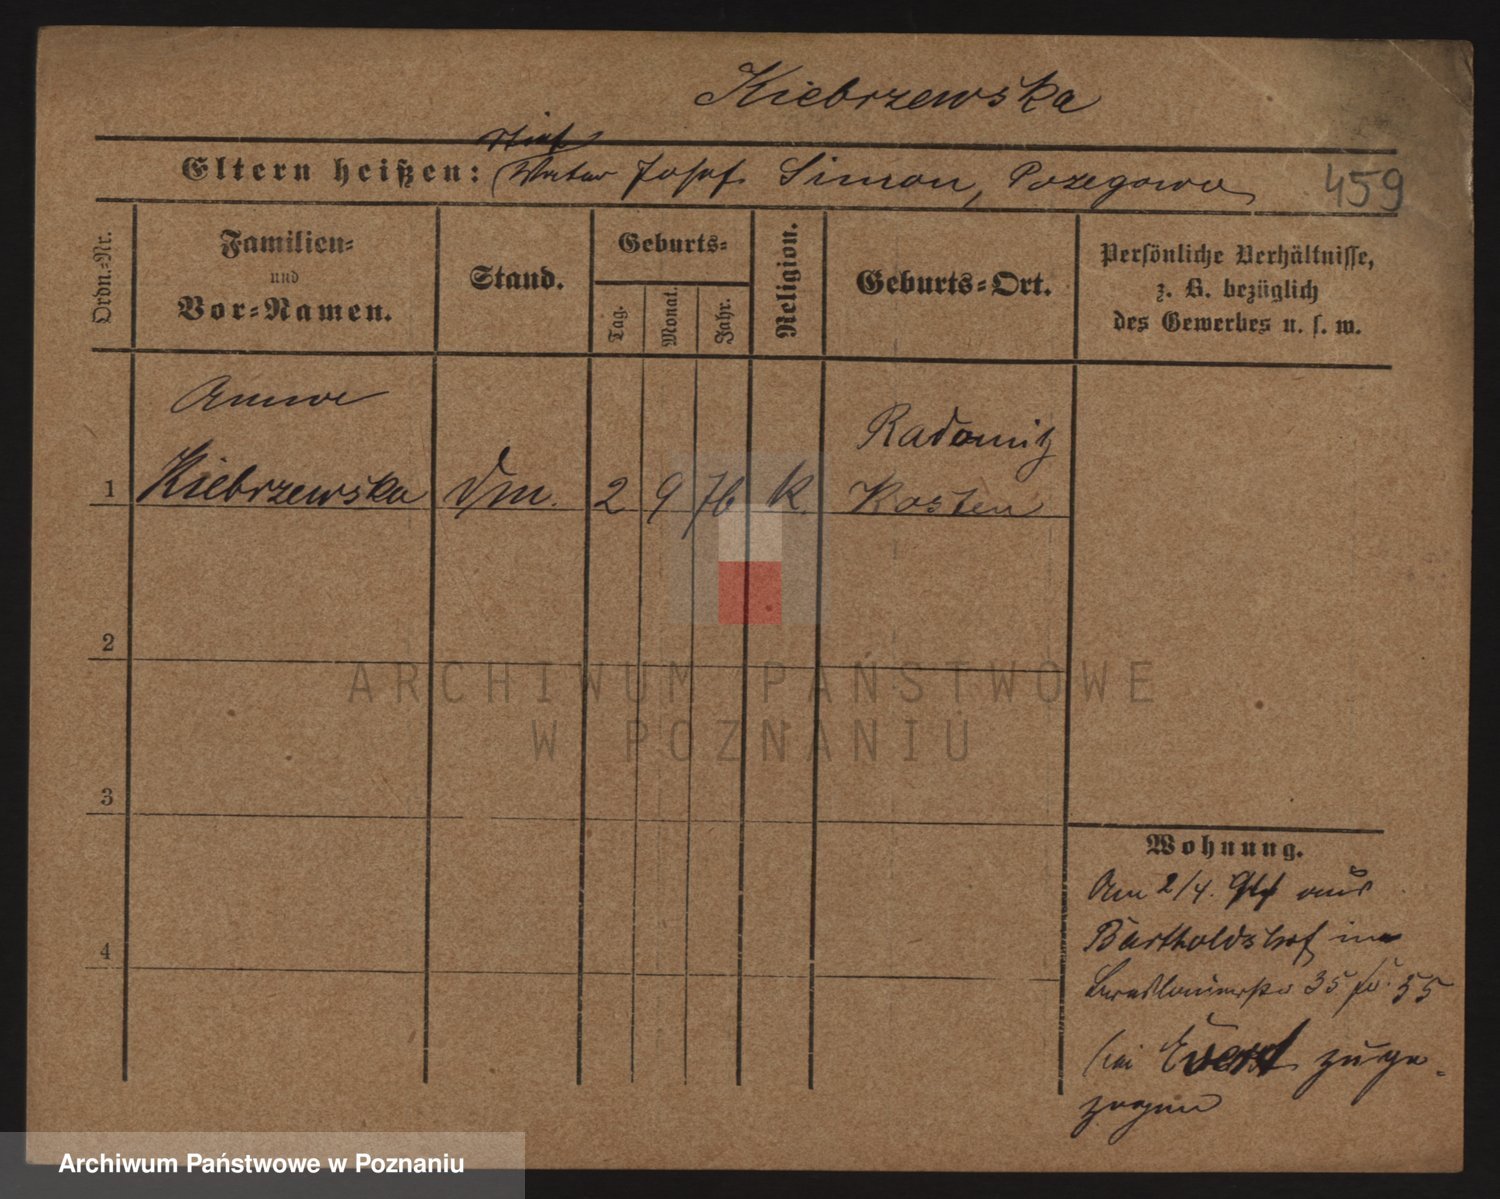 Kiebrzewska
Stief
Eltern heißen: Vater Josef Simon, Pozegowo
459
Ordn.=Nr.
Familien=
und
Vor=Namen.
Stand.
Geburts=
Tag.
Monat.
Jahr.
Religion.
Geburts=Ort.
Persönliche Verhältnisse,
z. B. bezüglich
des Gewerbes u. s. w.
Anna
Radomitz
1 Kiebrzewska Dm. 2 9 76 K. Kosten
2
3
4
Wohnung.
Am 2/4. aus
Bartholdshof in
Breslauerstr 35
bei zuge-
zogen
ARCHIWUM PAŃSTWOWE
W POZNANIU
Archiwum Państwowe w Poznaniu